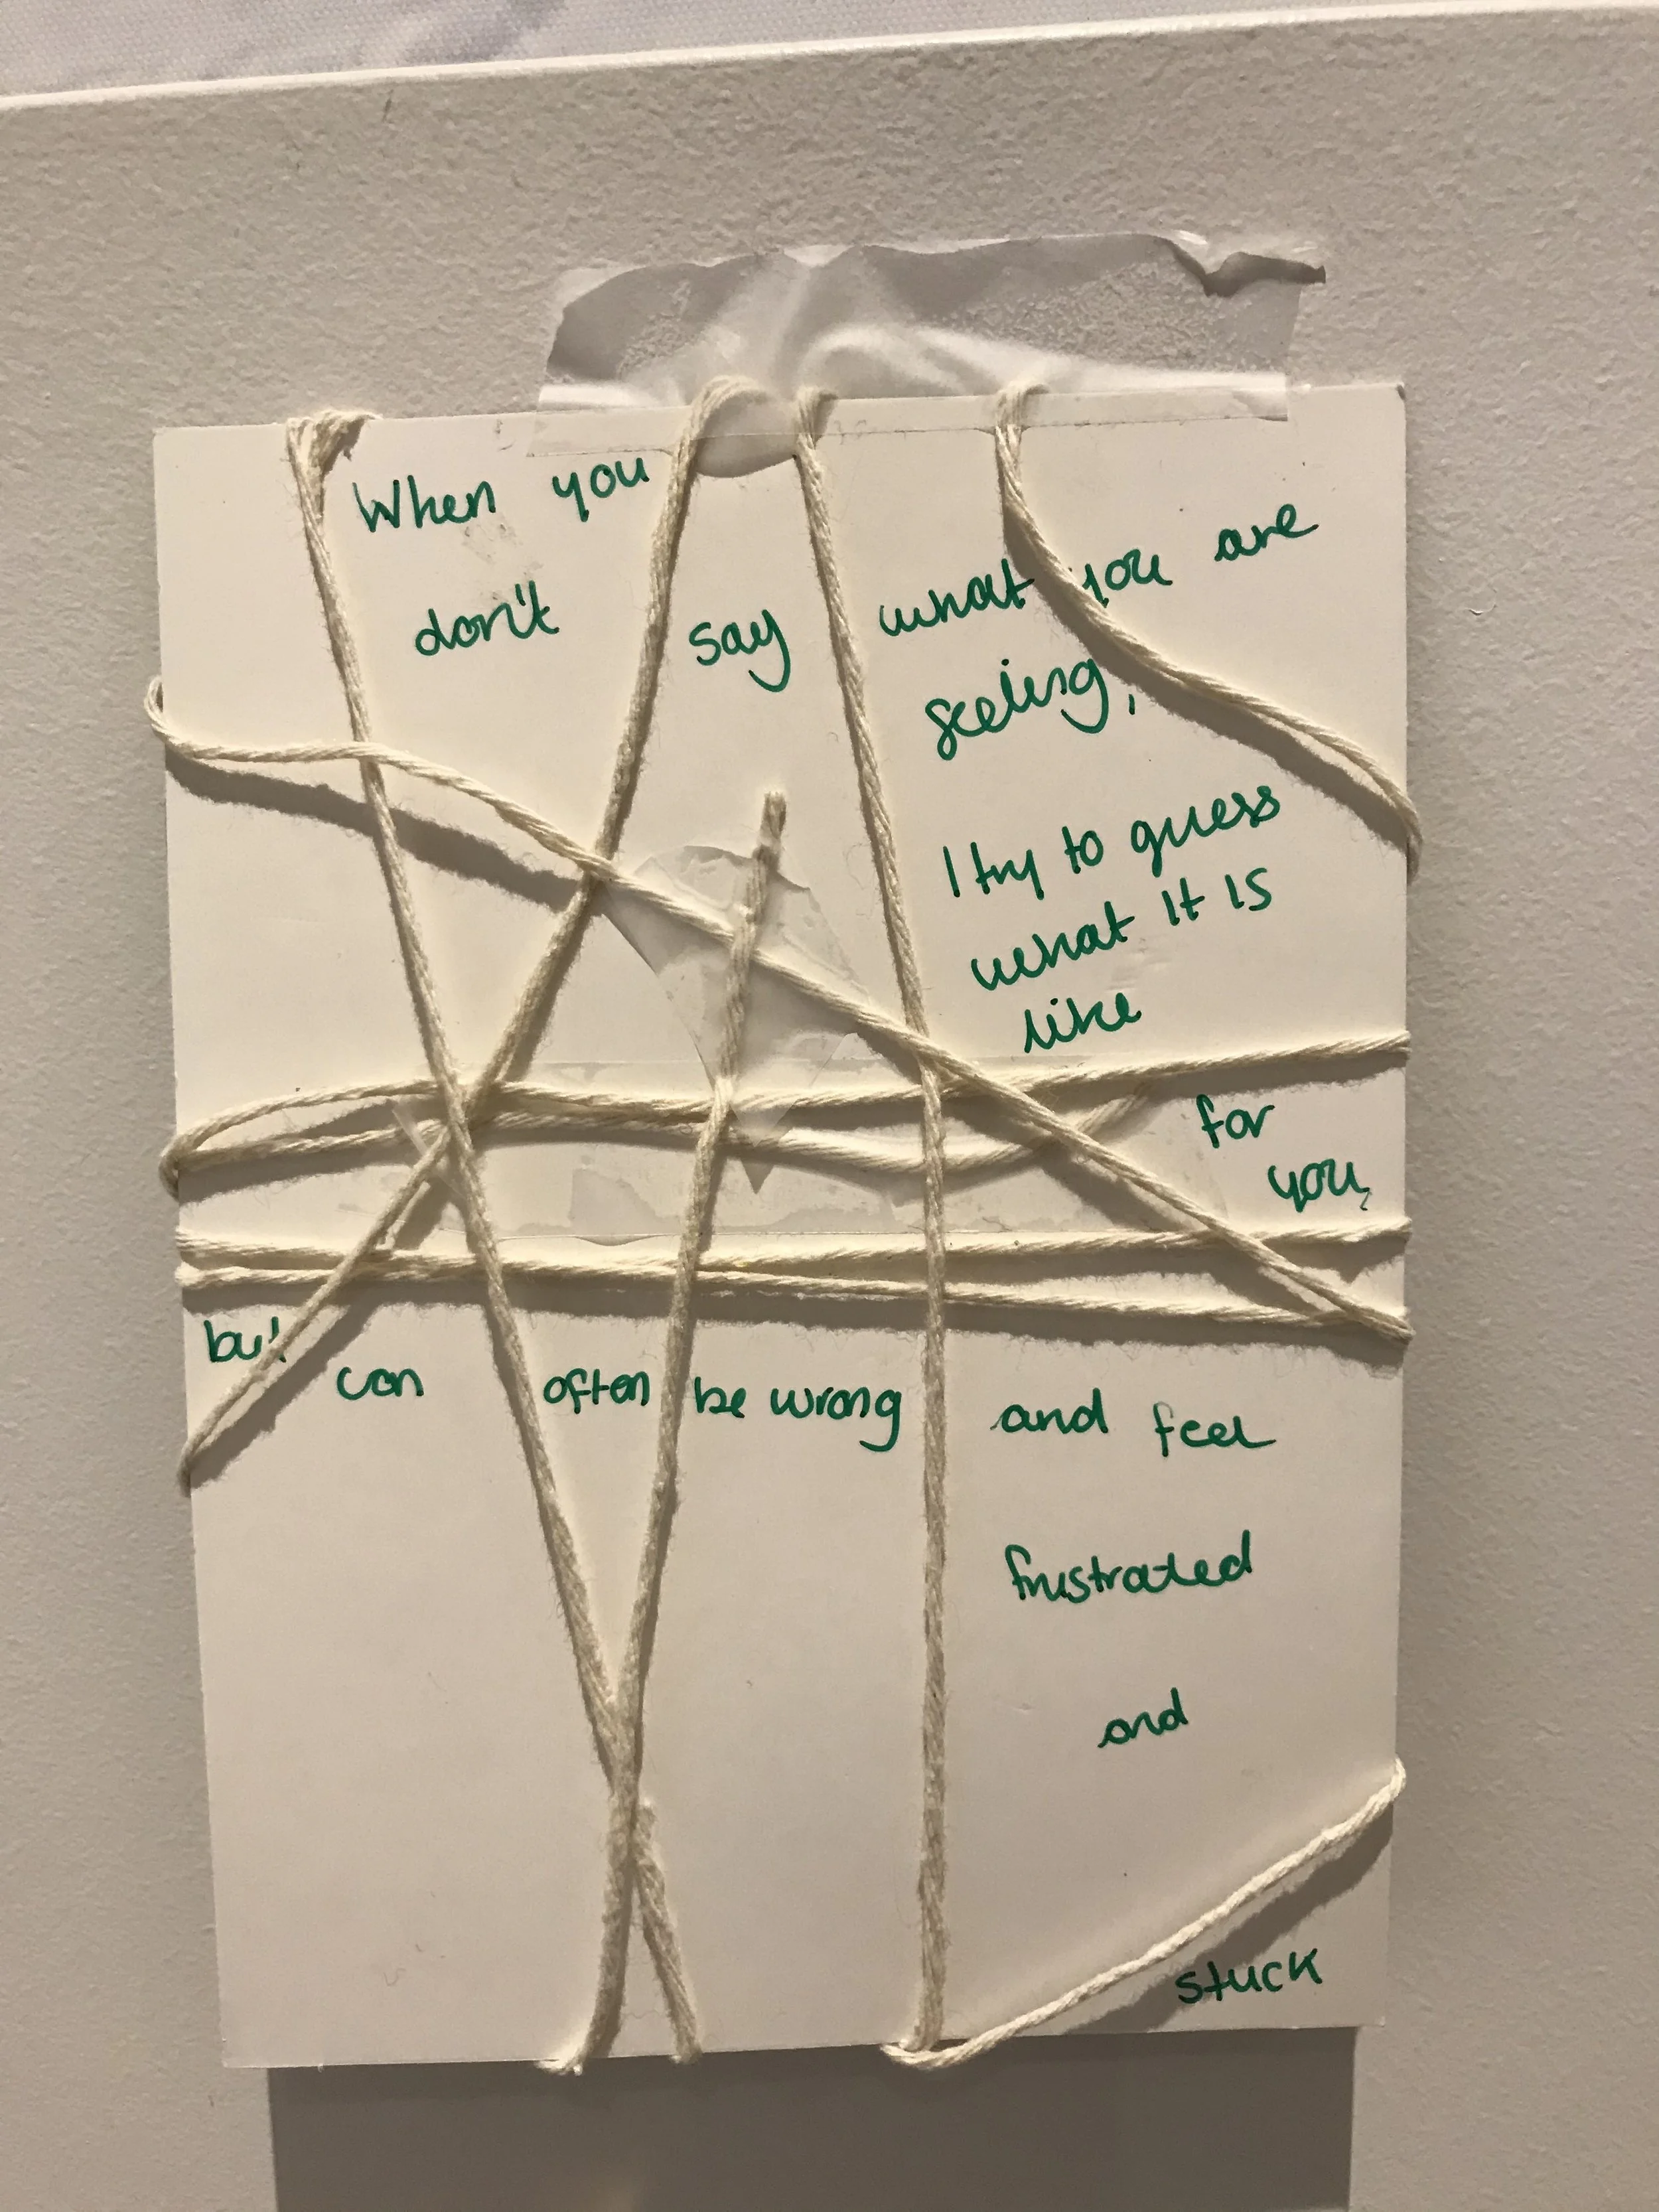 When you
don't say what you are
feeling,
I try to guess
what it is
like
for
you,
but can often be wrong and feel
frustrated
and
stuck